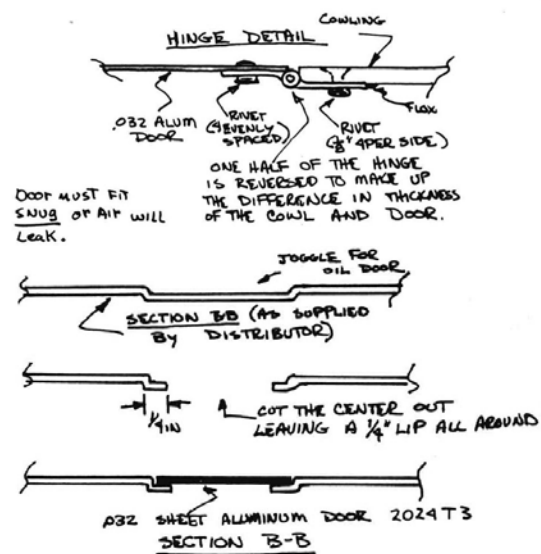 HINGE DETAIL
COWLING
.032 ALUM
DOOR
RIVET
(4 EVENLY
SPACED)
RIVET
(1/8" 4 PER SIDE)
FLOX
ONE HALF OF THE HINGE
IS REVERSED TO MAKE UP
THE DIFFERENCE IN THICKNESS
OF THE COWL AND DOOR.
DOOR MUST FIT
SNUG OR AIR WILL
LEAK.
JOGGLE FOR
OIL DOOR
SECTION BB (AS SUPPLIED
BY DISTRIBUTOR)
1/4 IN
CUT THE CENTER OUT
LEAVING A 1/4" LIP ALL AROUND
.032 SHEET ALUMINUM DOOR 2024 T3
SECTION B-B